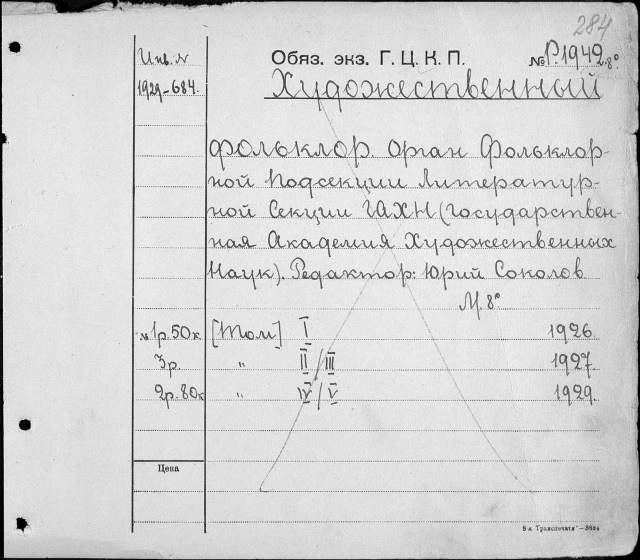 284
Инв. N
Обяз. экз. Г. Ц. К. П.
№ Р.1942.8º
1929-684.
Художественный
фольклор. Орган Фольклор-
ной Подсекции Литератур-
ной Секции ГАХН (Государствен-
ная Академия Художественных
Наук). Редактор: Юрий Соколов
М. 8º
№ 1р.50к. [Том] I 1926
3р. „ II/III 1927.
2р. 80к „ IV/V 1929.
Цена